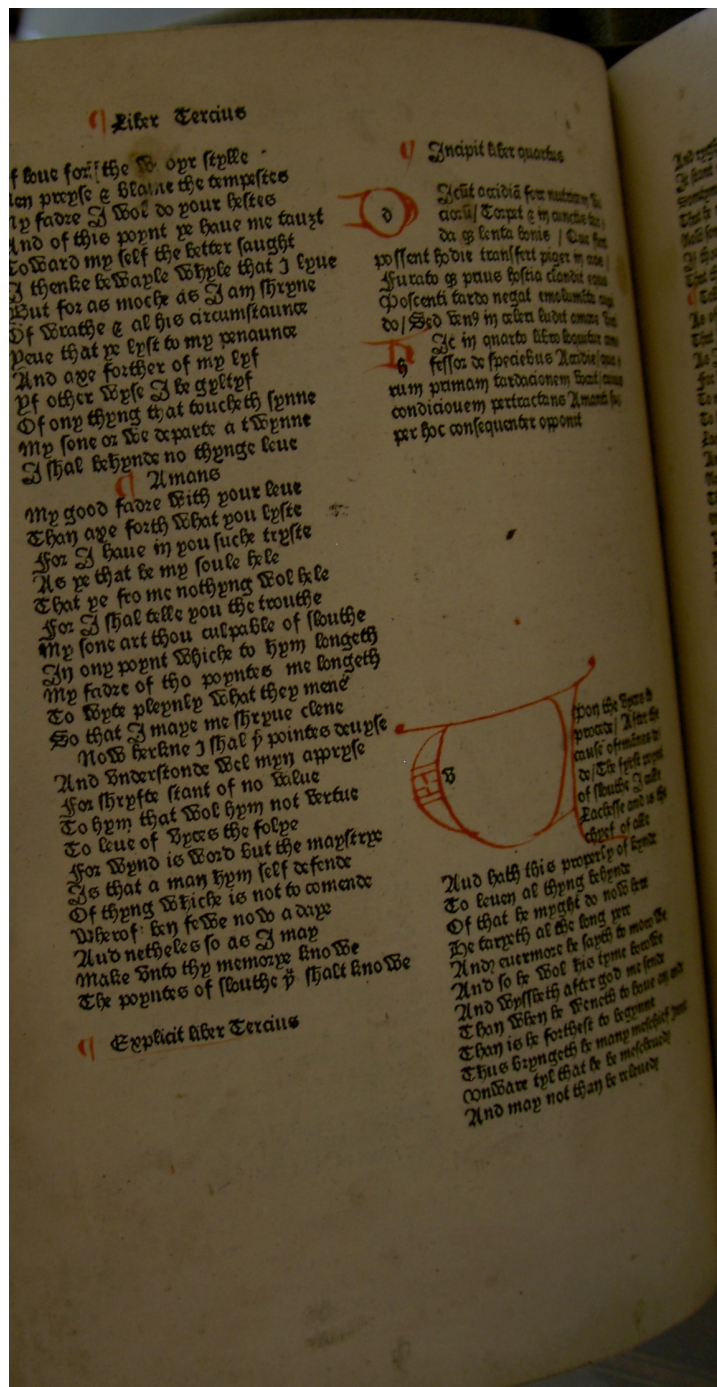 ¶ Liber Tercius
f loue for the opr stylle
en preyse & blame the tempestes
y fadre I wol do your hestes
nd of this poynt ye haue me tauzt
oward my self the better saught
I thenke bewayle whyle that I lyue
But for as moche as I am shryne
Of wrathe & al his circumstaunce
yeue that ye lyst to my penaunce
And axe forther of my lyf
yf other wyse I be gyltyf
Of ony thyng that toucheth synne
My sone or we departe a twynne
I shal behynde no thynge leue
¶ Amans
My good fadre with your leue
Than axe forth what you lyste
For I haue in you suche tryste
As ye that be my soule hele
That ye fro me nothyng wol hele
For I shal telle you the trouthe
My sone art thou culpable of slouthe
In ony poynt whiche to hym longeth
My fadre of tho poyntes me longeth
To wyte pleynly what they mene
So that I maye me shryue clene
Now herkne I shal yͤ pointes deuyse
And vnderstonde wel myn appryse
For shryfte stant of no value
To hym that wol hym not vertue
To leue of vyces the folye
For wynd is word but the maystrye
Is that a man hym self defende
Of thyng whiche is not to comende
wherof ben fewe now a daye
Aud netheles so as I may
Make vnto thy memorye knowe
The poyntes of slouthe yͧ shalt knowe
¶ Explicit liber Tercius
¶ Incipit liber quartus
d Icūt accidiā fore nutricem
Torpet & in cunctis
da qȝ lenta bonis / Que
possent hodie transfert piger in
Furato qȝ prius hostia claudit
Poscenti tardo negat emolumēta
do / Sed venꝰ in celeri ludit amore
h Ic in quarto libro loquitur
fessor de speciebus Accidie
rum primam tardacionem vocat
condiciouem pertractans Amanti
per hoc consequenter opponit
v pon the vyces
procede / After the
cause
de / The fyrst poynt
of slouthe I calle
Lachesse and is the
chyef of alle
Aud hath this properly of kynde
To leuen al thyng behynde
Of that he myght do now here
He taryeth al the long yere
And euermore he sayth to morowe
And so he wol his tyme borowe
And wyssheth after god me sende
Than when he weneth to haue an end
Than is he forthest to begynne
Thus bryngeth he many meschief ynne
vnware tyl that he be mescheued
And may not than be releued